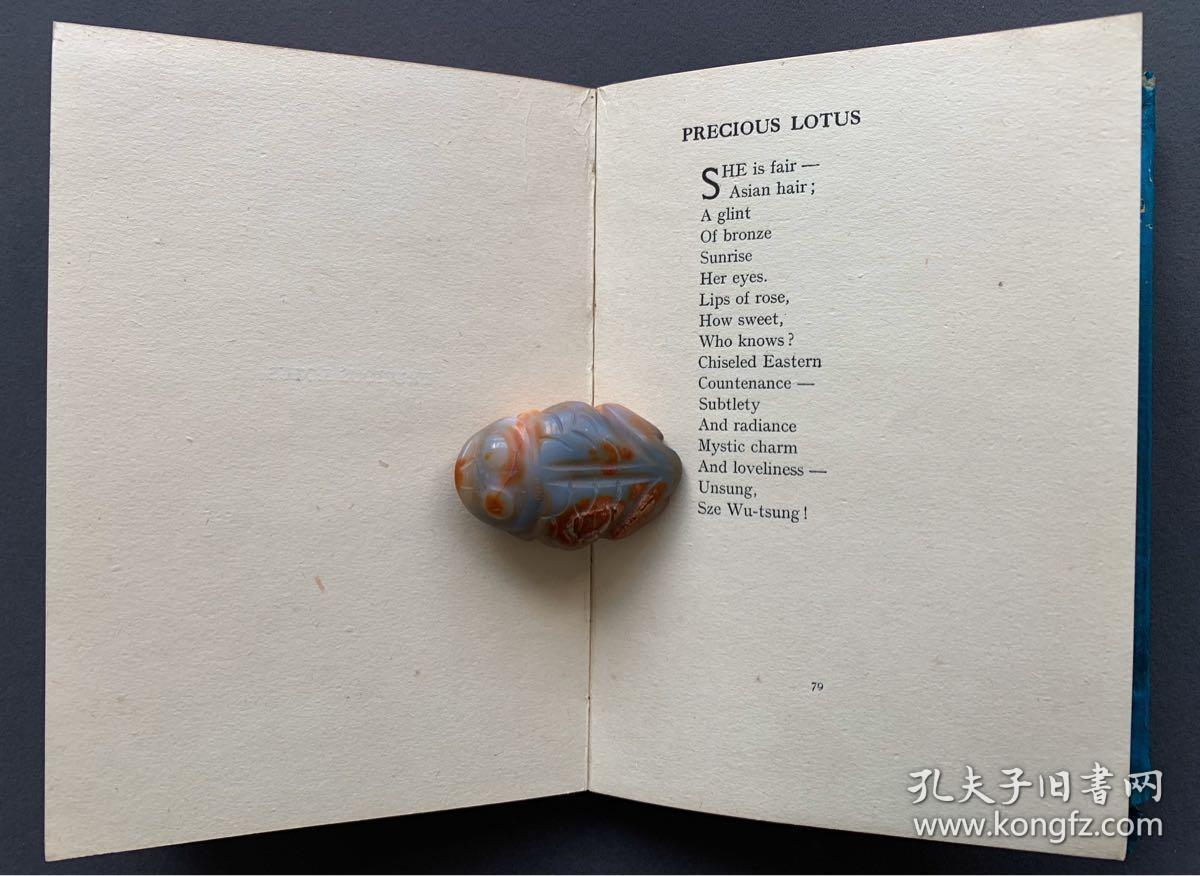 PRECIOUS LOTUS
SHE is fair —
Asian hair;
A glint
Of bronze
Sunrise
Her eyes.
Lips of rose,
How sweet,
Who knows?
Chiseled Eastern
Countenance —
Subtlety
And radiance
Mystic charm
And loveliness —
Unsung,
Sze Wu-tsung!
79
孔夫子旧书网
www.kongfz.com